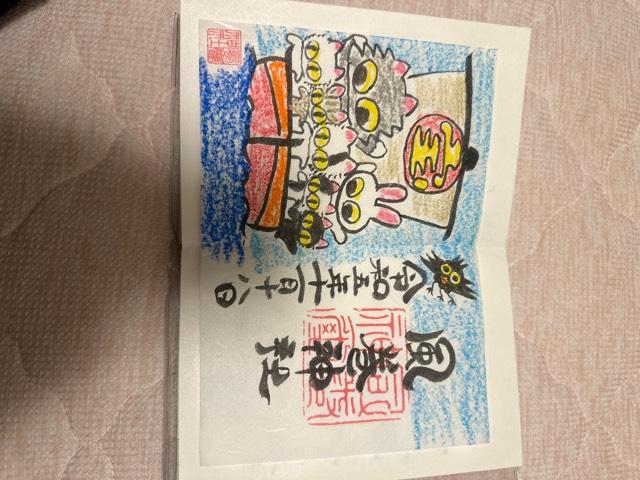 風巻神社
令和五年十一月十八日
宝